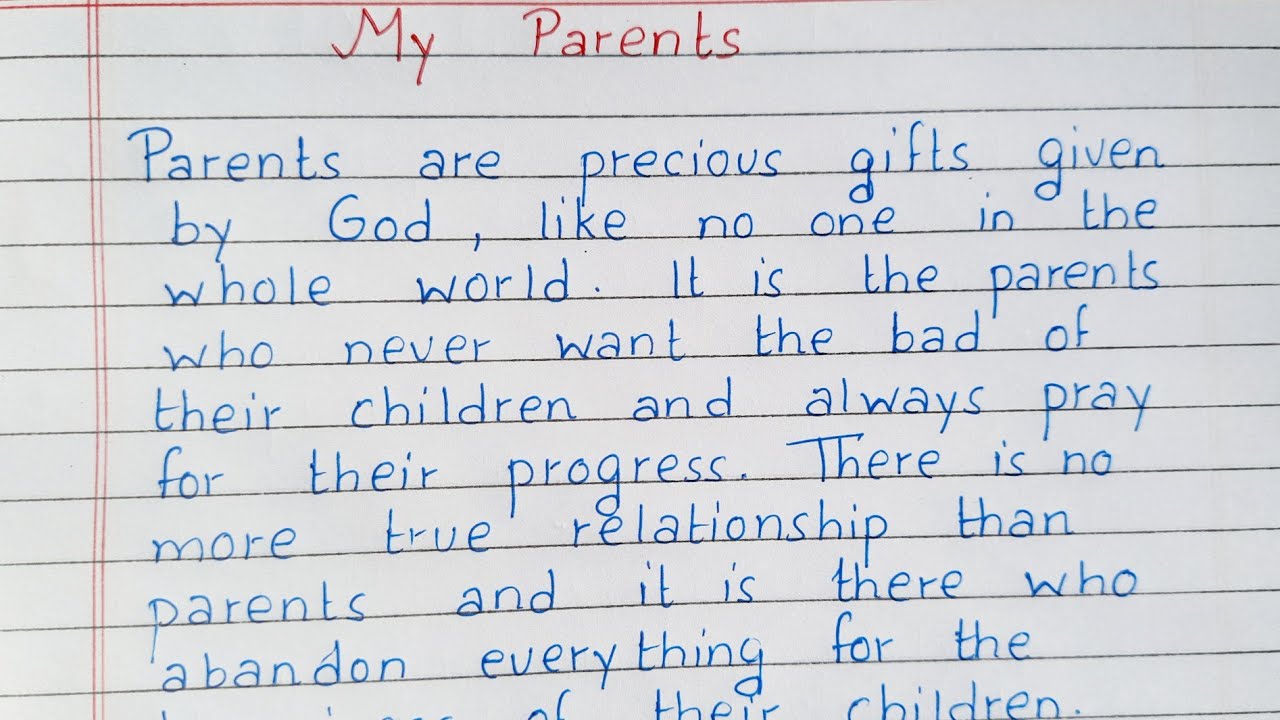 My Parents
Parents are precious gifts given
by God, like no one in the
whole world. It is the parents
who never want the bad of
their children and always pray
for their progress. There is no
more true relationship than
parents and it is there who
abandon everything for the
of their children.